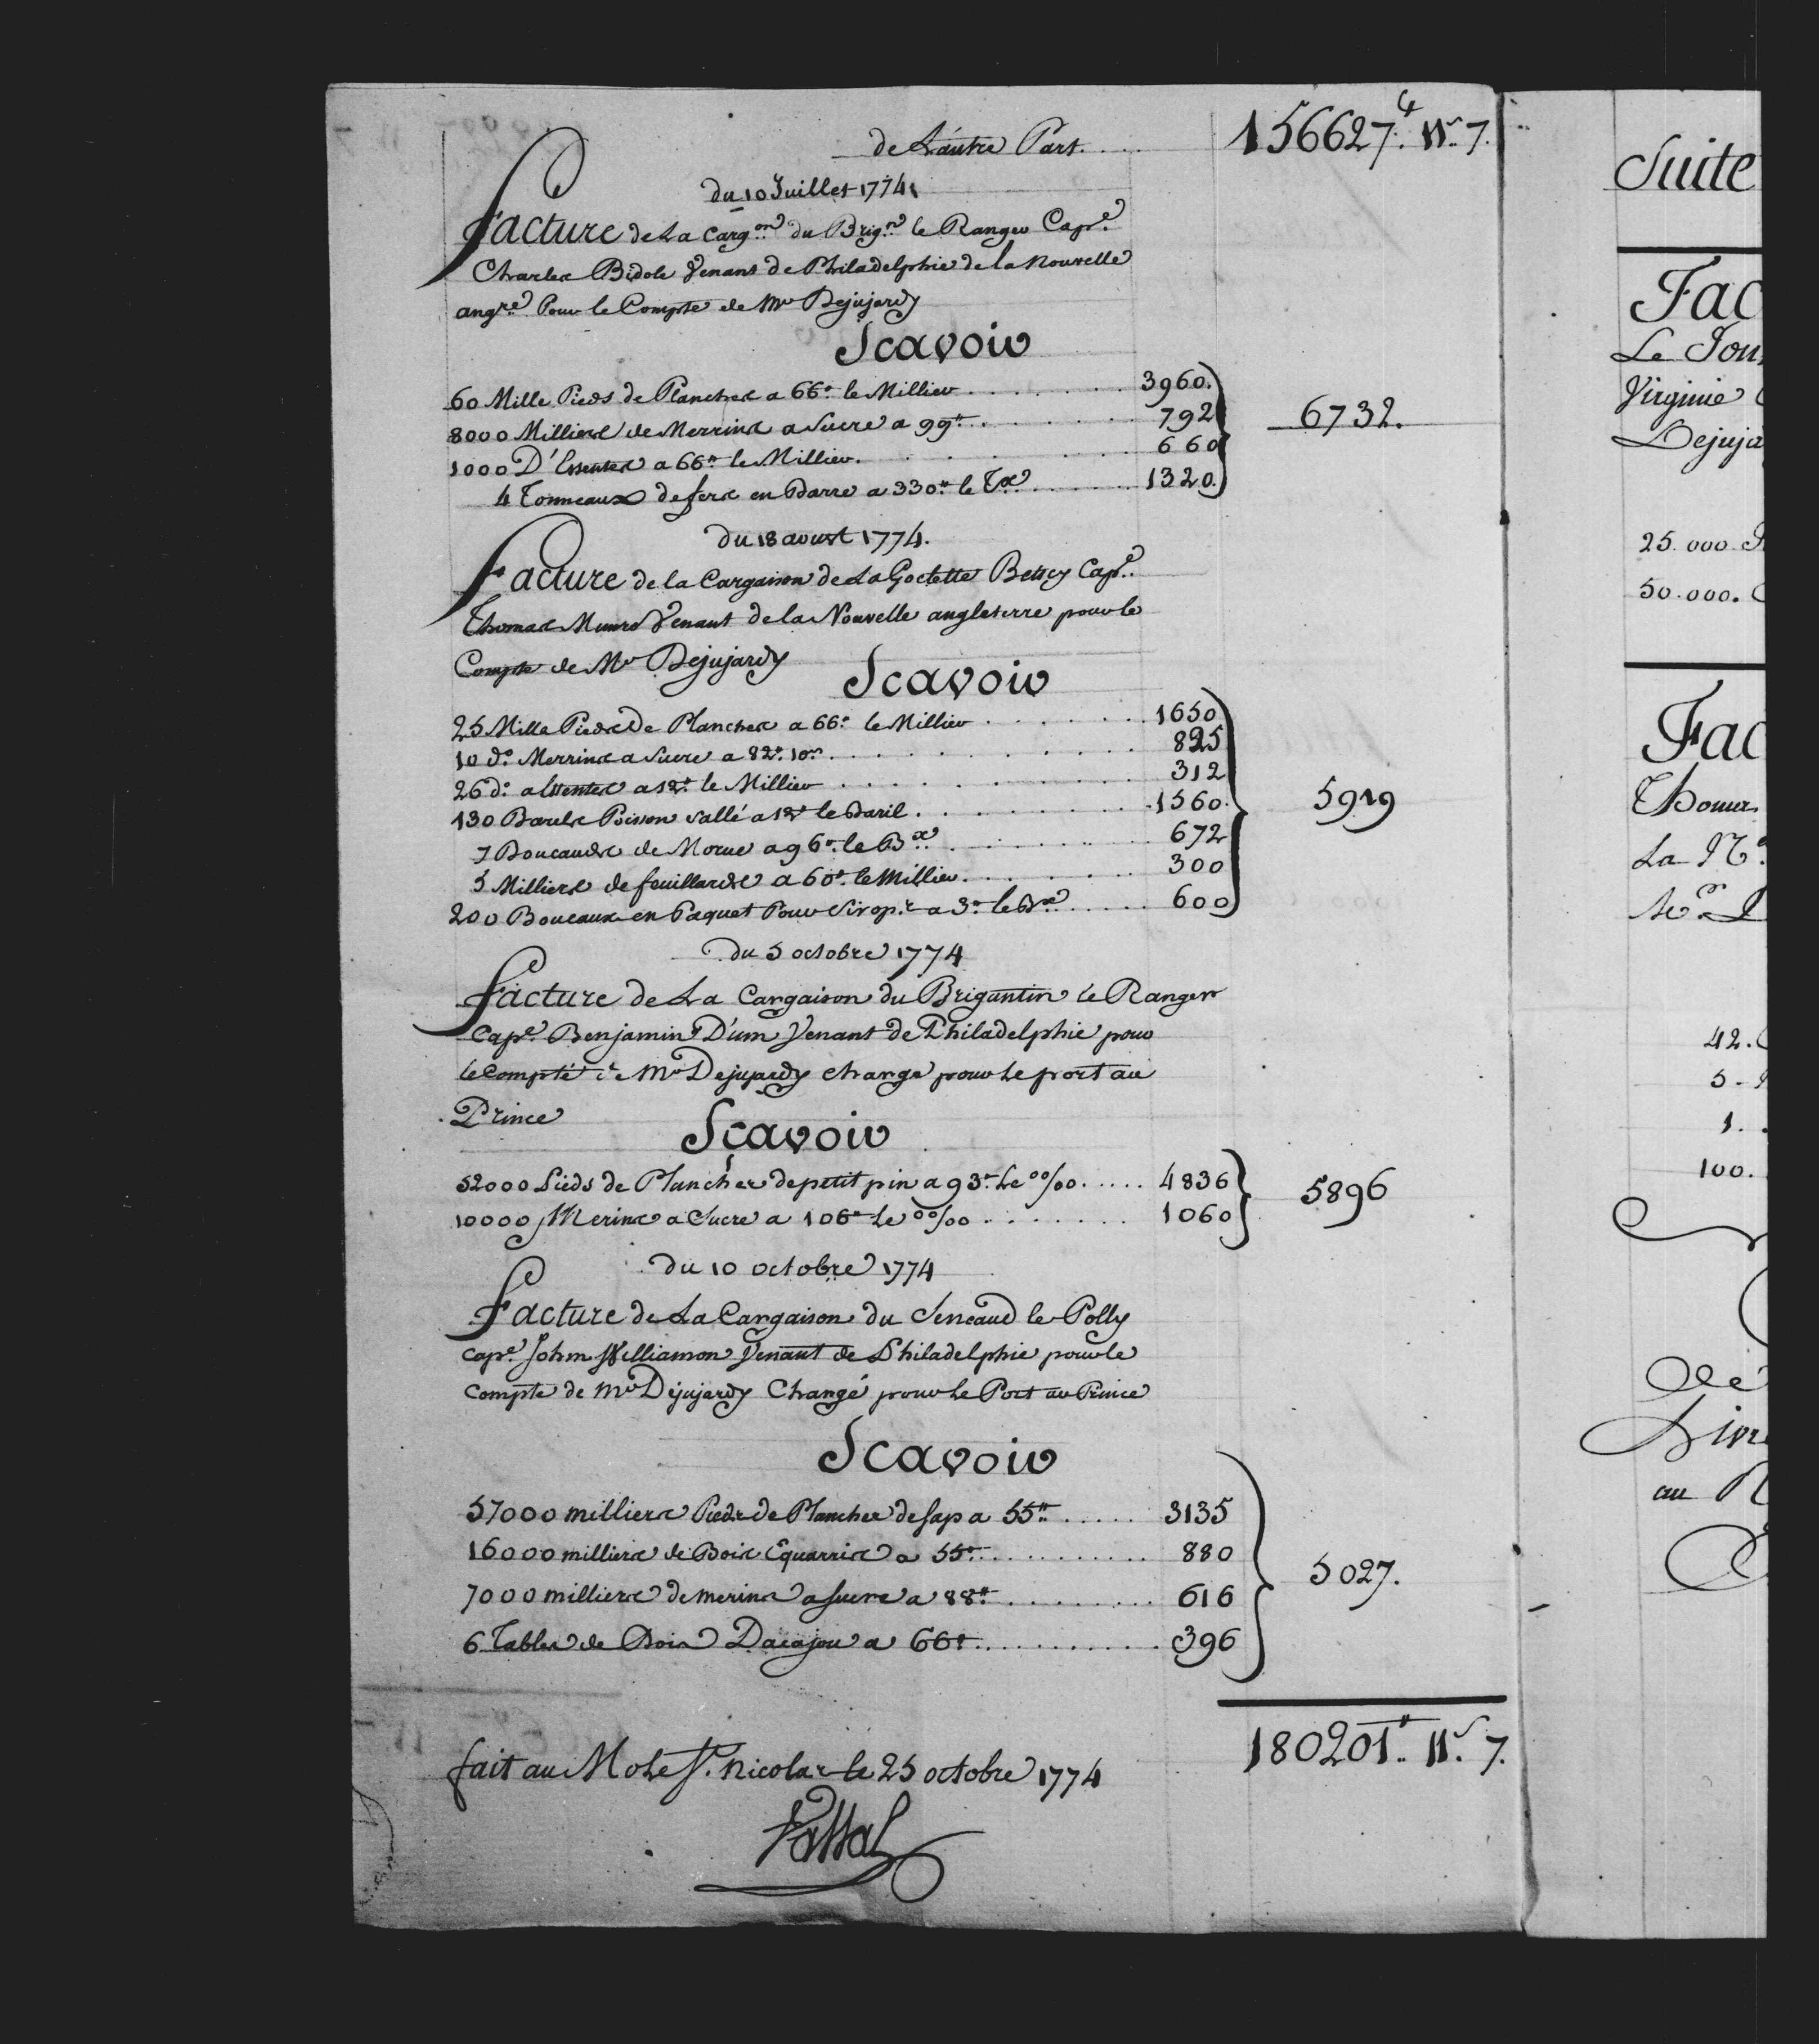 de L'autre Part..... 156627.# 11.s 7.
du 10 Juillet 1774
Facture de La Carg.on du Brig.n le Ranger Cap.e
Charles Bidole Venant de Philadelphie de la Nouvelle
ang.re Pour le Compte de Mr Dejujardy
Scavoir
60 Mille Pieds de Planches a 66.# le Millier...... 3960.
8000 Milliers de Merrins a Sucre a 99.#...... 792
1000 D'Essentes a 66.# le Millier...... 660
4 Tonneaux de fers en Barre a 330.# le Tx...... 1320.
6732.
du 18 aoust 1774.
Facture de la Cargaison de La Goelette Betscy Cap.e
Thomas Munro Venant de la Nouvelle angleterre pour le
Compte de Mr Dejujardy
Scavoir
25 Mille Pieds De Planches a 66.# le Millier...... 1650
10 d.o Merrins a Sucre a 82.# 10.s...... 825
26 d.o assentes a 12.# le Millier...... 312
130 Barils Poisson sallé a 12.# le Baril...... 1560.
7 Boucauds de Morue a 96.# le B.x...... 672
5 Milliers de feuillards a 60.# le Millier...... 300
200 Boucaux en Paquet Pour Sirop.s a 3.# le B.x...... 600
5919
du 5 octobre 1774
Facture de La Cargaison du Brigantin le Ranger
Cap.e Benjamin D'um Venant de Philadelphie pour
le Compte de Mr Dejujardy Changé pour Le port au
Prince
Scavoir
52000 Pieds de Planches de petit pin a 93.# Le 00/00..... 4836
10000 Merins a Sucre a 106.# Le 00/00...... 1060
5896
du 10 octobre 1774
Facture de La Cargaison du Seneaud le Polly
cap.e John Williamon Venant de Philadelphie pour le
compte de Mr Dejujardy Changé pour Le Port au Prince
Scavoir
57000 milliers Pieds de Planches de sap a 55.#..... 3135
16000 milliers de Bois Equarris a 55.#...... 880
7000 milliers de merins a sucre a 88.#...... 616
6 Tables de Bois D'acajou a 66.#...... 396
5027.
180201.# 11.s 7.
fait au Mole St. Nicolas le 25 octobre 1774
Vattal
Suite
Fac
Le Jou
Virginie
Dejuja
25.000
50.000.
Fac
Thomas
La N.
42.
5.
1.
100.
au